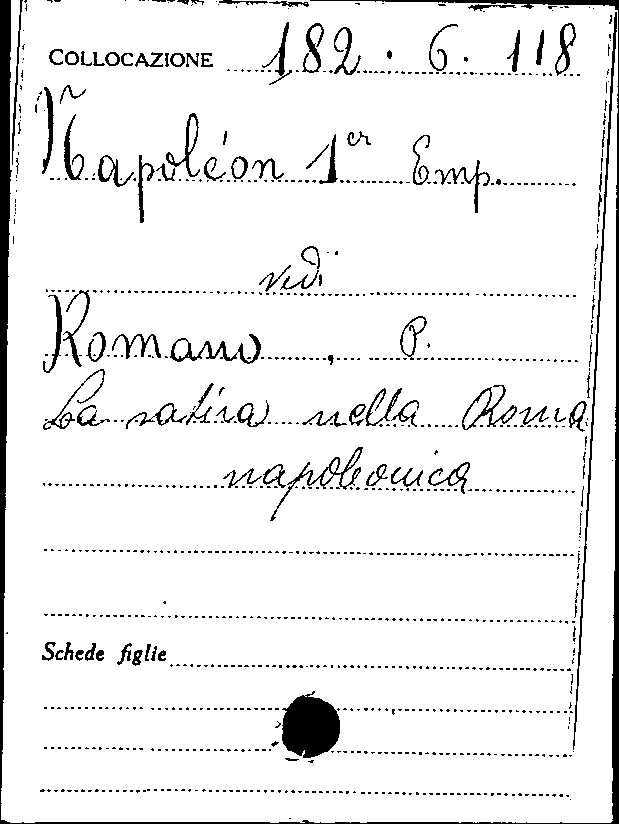 COLLOCAZIONE 182.6.118
Napoléon 1er Emp.
vedi
Romano, P.
La satira nella Roma
napoleonica
Schede figlie